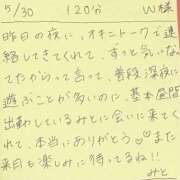 5/30 120分 W様
昨日の夜に、オキニトークで連
絡してきてくれて、ずっと気になっ
てたからって言って、普段深夜に
遊ぶことが多いのに、基本昼間
出勤しているみとに会いに来てく
れて、本当にありがとう♡また
来月も楽しみに待ってるね!!
みと